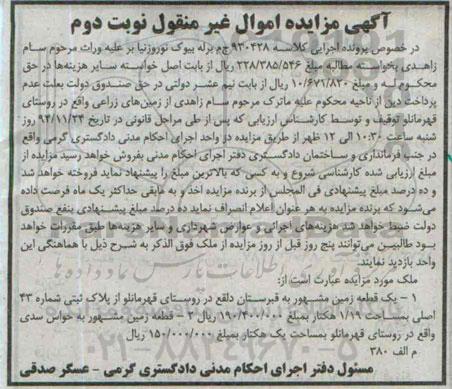 آگهی مزایده اموال غیر منقول نوبت دوم
در خصوص پرونده اجرایی کلاسه ۹۳۰۴۲۸ ج م برله بیوک نوروزنیا بر علیه وراث مرحوم سام
زاهدی بخواسته مطالبه مبلغ ۲۲۸/۳۸۵/۵۴۶ ریال از بابت اصل خواسته سایر هزینه‌ها در حق
محکوم‌له و مبلغ ۱۰/۶۷۱/۸۲۰ ریال از بابت نیم عشر دولتی در حق صندوق دولت بعلت عدم
پرداخت دین از ناحیه محکوم علیه ماترک مرحوم سام زاهدی از زمین‌های زراعی واقع در روستای
قهرمانلو توقیف و توسط کارشناس ارزیابی که پس از طی مراحل قانونی در تاریخ ۹۴/۱۱/۲۴ روز
شنبه ساعت ۱۰:۳۰ الی ۱۲ ظهر از طریق مزایده در واحد اجرای احکام مدنی دادگستری گرمی واقع
در جنب فرمانداری و ساختمان دادگستری دفتر اجرای احکام مدنی بفروش خواهد رسید مزایده از
مبلغ ارزیابی شده کارشناسی شروع و به کسی که بالاترین مبلغ را پیشنهاد نماید فروخته خواهد شد
و ده درصد مبلغ پیشنهادی فی المجلس از برنده مزایده اخذ و به مابقی حداکثر یک ماه فرصت داده
می‌شود که برنده مزایده به هر عنوان اعلام انصراف نماید ده درصد مبلغ پیشنهادی بنفع صندوق
دولت ضبط خواهد شد هزینه‌های اجرائی و عوارض شهرداری و سایر هزینه‌ها طبق مقررات خواهد
بود طالبین می‌توانند پنج روز قبل از روز مزایده از ملک فوق الذکر به شرح ذیل با هماهنگی این
واحد بازدید نمایند.
ملک مورد مزایده عبارت است از:
۱ - یک قطعه زمین مشهور به قبرستان دلقع در روستای قهرمانلو از پلاک ثبتی شماره ۴۳
اصلی بمساحت ۱/۱۹ هکتار بمبلغ ۱۹۰/۴۰۰/۰۰۰ ریال ۲ - قطعه زمین مشهور به خواس سدی
واقع در روستای قهرمانلو بمساحت یک هکتار بمبلغ ۱۵۰/۰۰۰/۰۰۰ ریال
م الف ۳۸۰
مسئول دفتر اجرای احکام مدنی دادگستری گرمی - عسگر صدقی